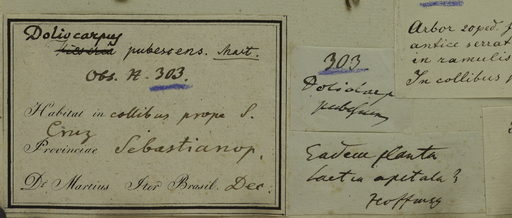 Doliocarpus
pubescens. Mart.
Obs. N. 303.
Habitat in collibus prope S.
Cruz
Provinciae Sebastianop.
Dr Martius Iter Brasil. Dec.
303
Doliocarp
pubescens
Eadem planta
Laetia apetala?
Hoffmsg
Arbor 20 ped.
antice serrat
in ramulis
In collibus